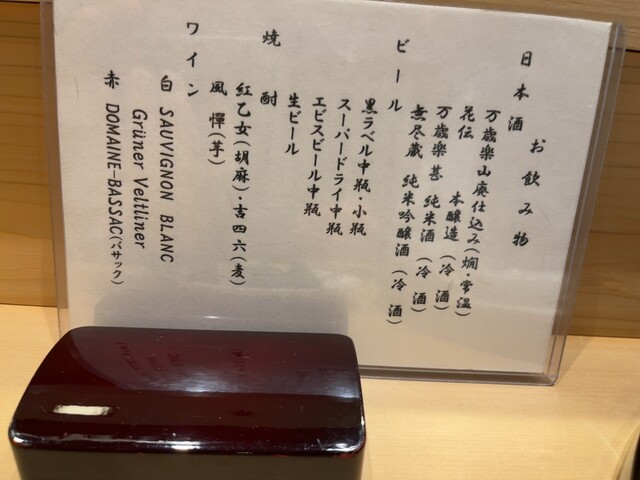 お飲み物
日本酒
万歳楽山廃仕込み(燗・常温)
花伝 本醸造(冷酒)
万歳楽 甚 純米酒(冷酒)
無尽蔵 純米吟醸酒(冷酒)
ビール
黒ラベル中瓶・小瓶
スーパードライ中瓶
エビスビール中瓶
生ビール
焼酎
紅乙女(胡麻)・吉四六(麦)
風憚(芋)
ワイン
白 SAUVIGNON BLANC
Grüner Veltliner
赤 DOMAINE-BASSAC(バサック)